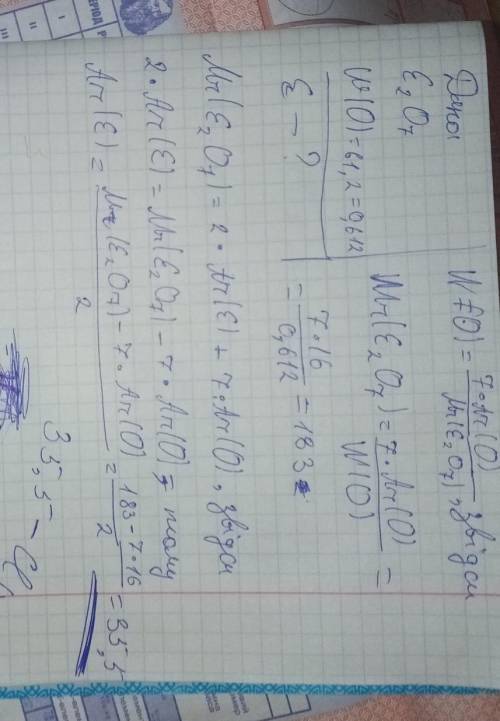 Дано
E₂O₇
W(O)=61,2=0,612
E – ?
W(O) = 7·Ar(O) / Mr(E₂O₇), звідси
Mr(E₂O₇) = 7·Ar(O) / W(O) =
= 7·16 / 0,612 = 183
Mr(E₂O₇) = 2·Ar(E) + 7·Ar(O), звідси
2·Ar(E) = Mr(E₂O₇) – 7·Ar(O), тому
Ar(E) = Mr(E₂O₇) – 7·Ar(O) / 2 = 183–7·16 / 2 = 35,5
35,5 – Cl